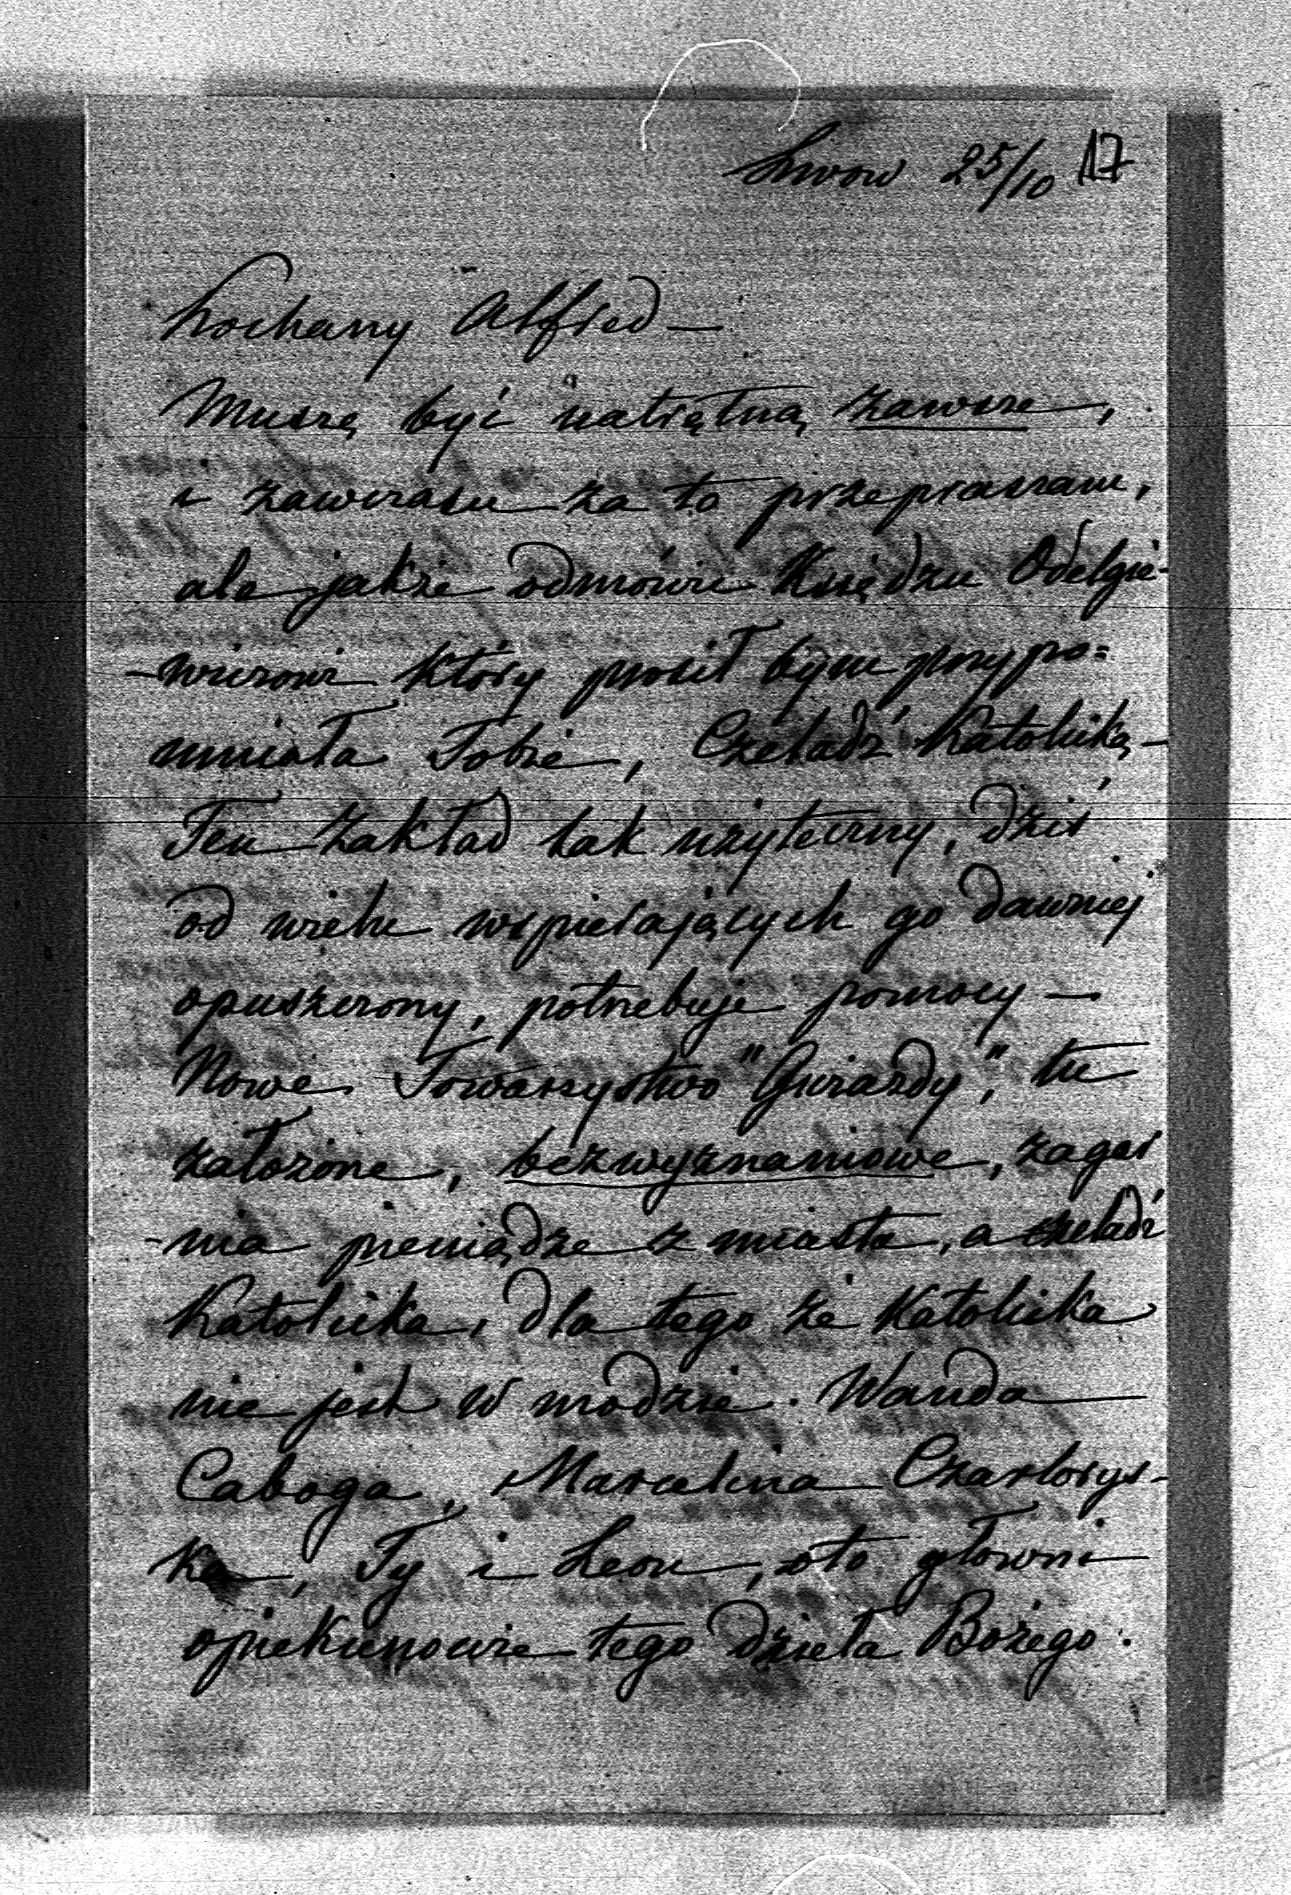 Lwow 25/10 17
Kochany Alfred —
Muszę być natrętną zawsze,
i zawczasu za to przepraszam,
ale jakże odmówić Księdzu Odelgie-
-wiczowi który prosił bym przypo=
mniała Tobie, Czeladź Katolicką —
Ten zakład tak użyteczny, dziś
od wielu wspierających go dawniej
opuszczony, potrzebuje pomocy —
Nowe Towarzystwo "Gwiazdy", tu
założone, bezwyznaniowe, zagar
-nia pieniądze z miasta, a czeladź
Katolicka, dla tego że Katolicka
nie jest w modzie. Wanda
Caboga, Marcelina Czartorys-
ka, Ty i Leon, oto głowni
opiekunowie tego dzieła Bożego.